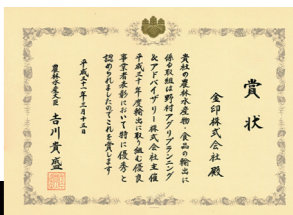 賞状
金印株式会社 殿
貴社の農林水産物・食品の輸出に
係る取組は野村アグリプランニング
&アドバイザリー株式会社主催
平成三十年度輸出に取り組む優良
事業者表彰において特に優秀と
認められましたのでこれを賞します
平成三十一年三月十五日
農林水産大臣 吉川貴盛